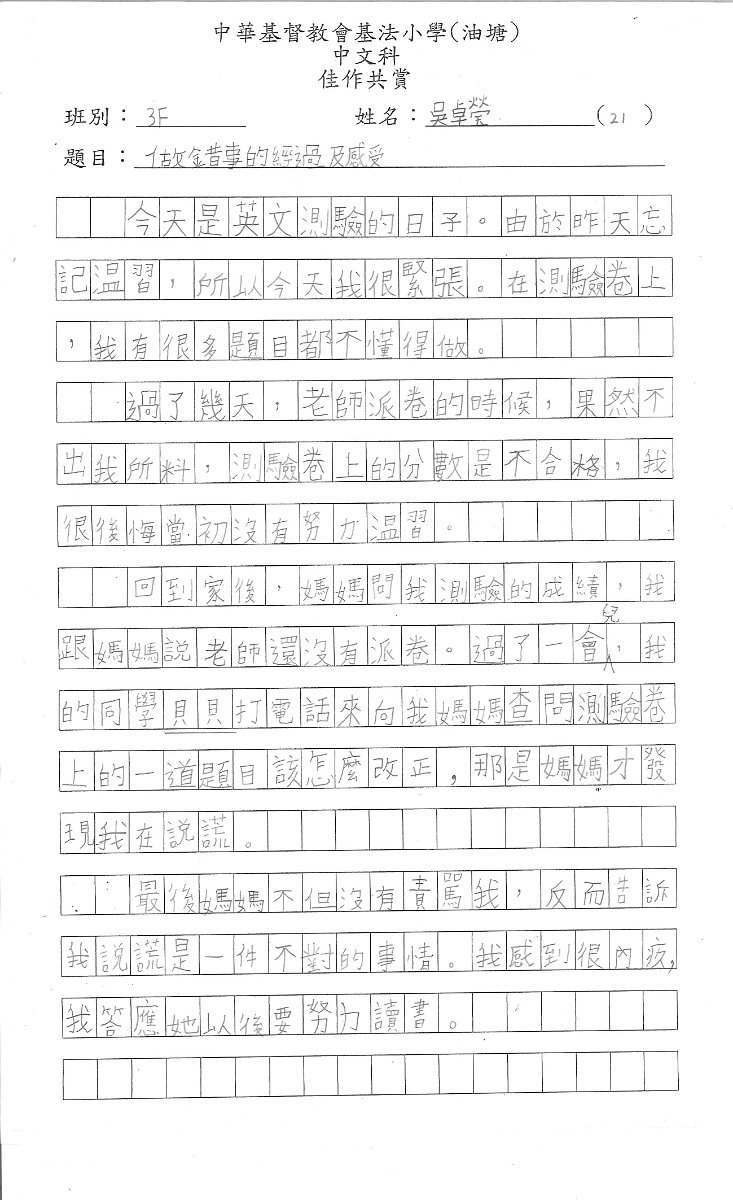 中華基督教會基法小學(油塘)
中文科
佳作共賞
班別：3F 姓名：吳卓瑩 (21)
題目：做錯事的經過及感受
今天是英文測驗的日子。由於昨天忘
記温習，所以今天我很緊張。在測驗卷上
，我有很多題目都不懂得做。
過了幾天，老師派卷的時候，果然不
出我所料，測驗卷上的分數是不合格，我
很後悔當初沒有努力温習。
回到家後，媽媽問我測驗的成績，我
跟媽媽說老師還沒有派卷。過了一會兒，我
的同學貝貝打電話來向我媽媽查問測驗卷
上的一道題目該怎麼改正，那是媽媽才發
現我在說謊。
最後媽媽不但沒有責罵我，反而告訴
我說謊是一件不對的事情。我感到很內疚，
我答應她以後要努力讀書。